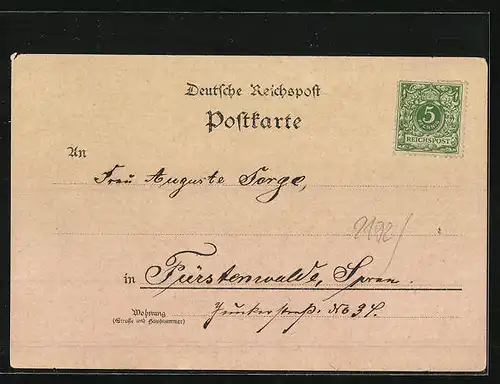 Deutsche Reichspost
Postkarte
5
PFENNIG
REICHSPOST
An
Frau Auguste Sorge,
2192/
in Fürstenwalde, Spree.
Wohnung
(Straße und Hausnummer)
Junkerstraß. No 34.